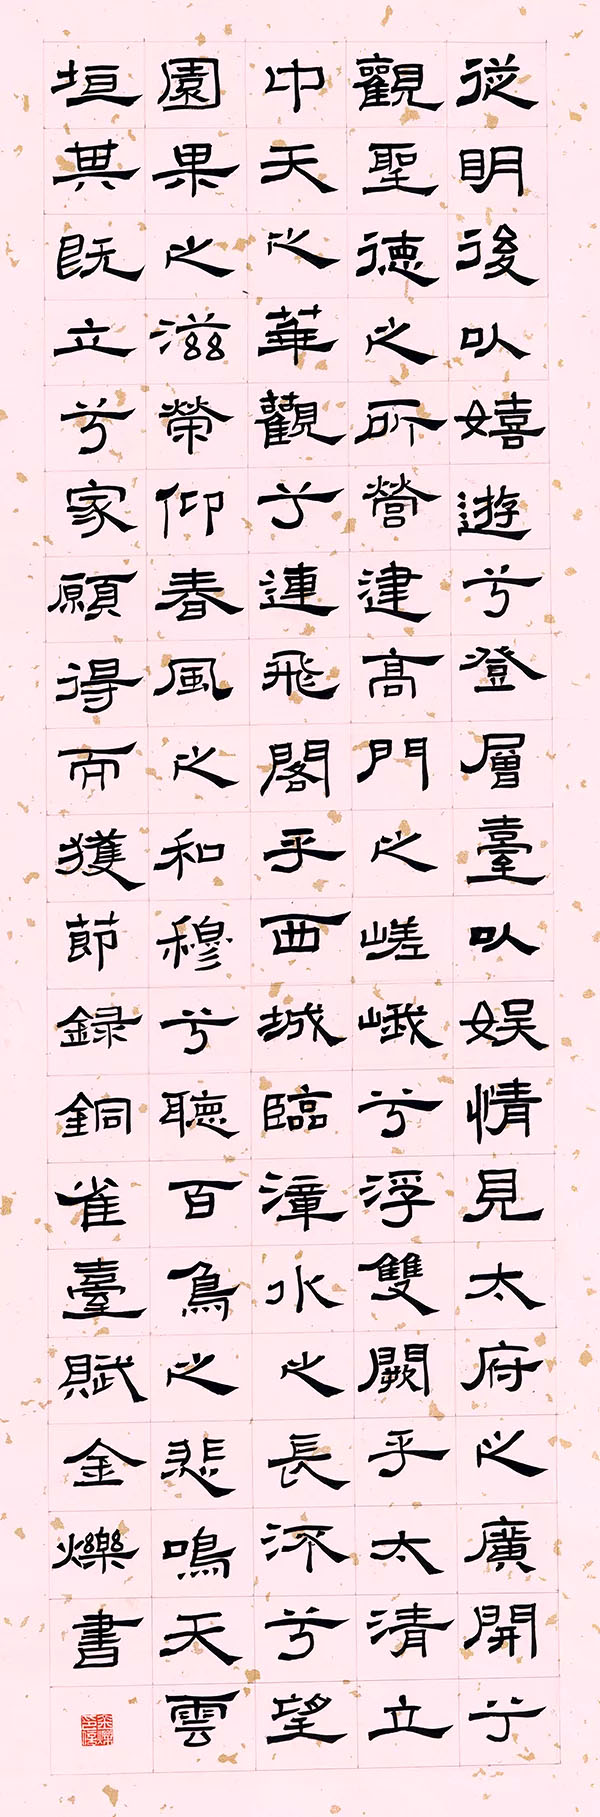 從明後以嬉遊兮登層臺以娛情見太府之廣開兮
觀聖德之所營建高門之嵯峨兮浮雙闕乎太清立
中天之華觀兮連飛閣乎西城臨漳水之長流兮望
園果之滋榮仰春風之和穆兮聽百鳥之悲鳴天雲
垣其既立兮家願得而獲節録銅雀臺賦金爍書